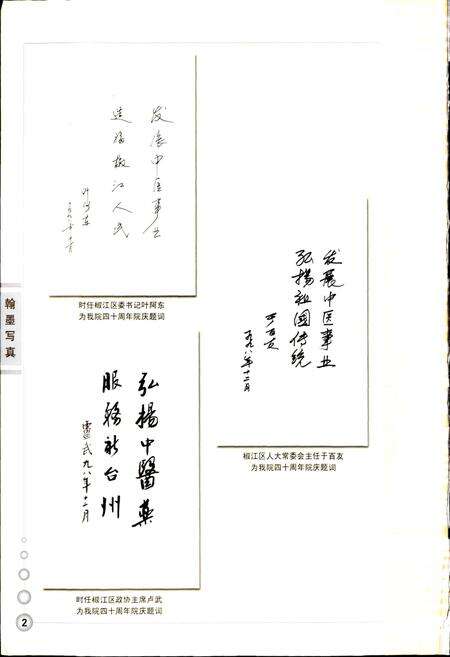 发展中医事业
造福椒江人民
叶阿东
一九九八年十二月
时任椒江区委书记叶阿东
为我院四十周年院庆题词
发展中医事业
弘揚祖国传统
于百友
一九九八年十二月
椒江区人大常委会主任于百友
为我院四十周年院庆题词
弘揚中醫藥
服務新台州
盧武九八年十二月
时任椒江区政协主席卢武
为我院四十周年院庆题词
翰墨写真
2